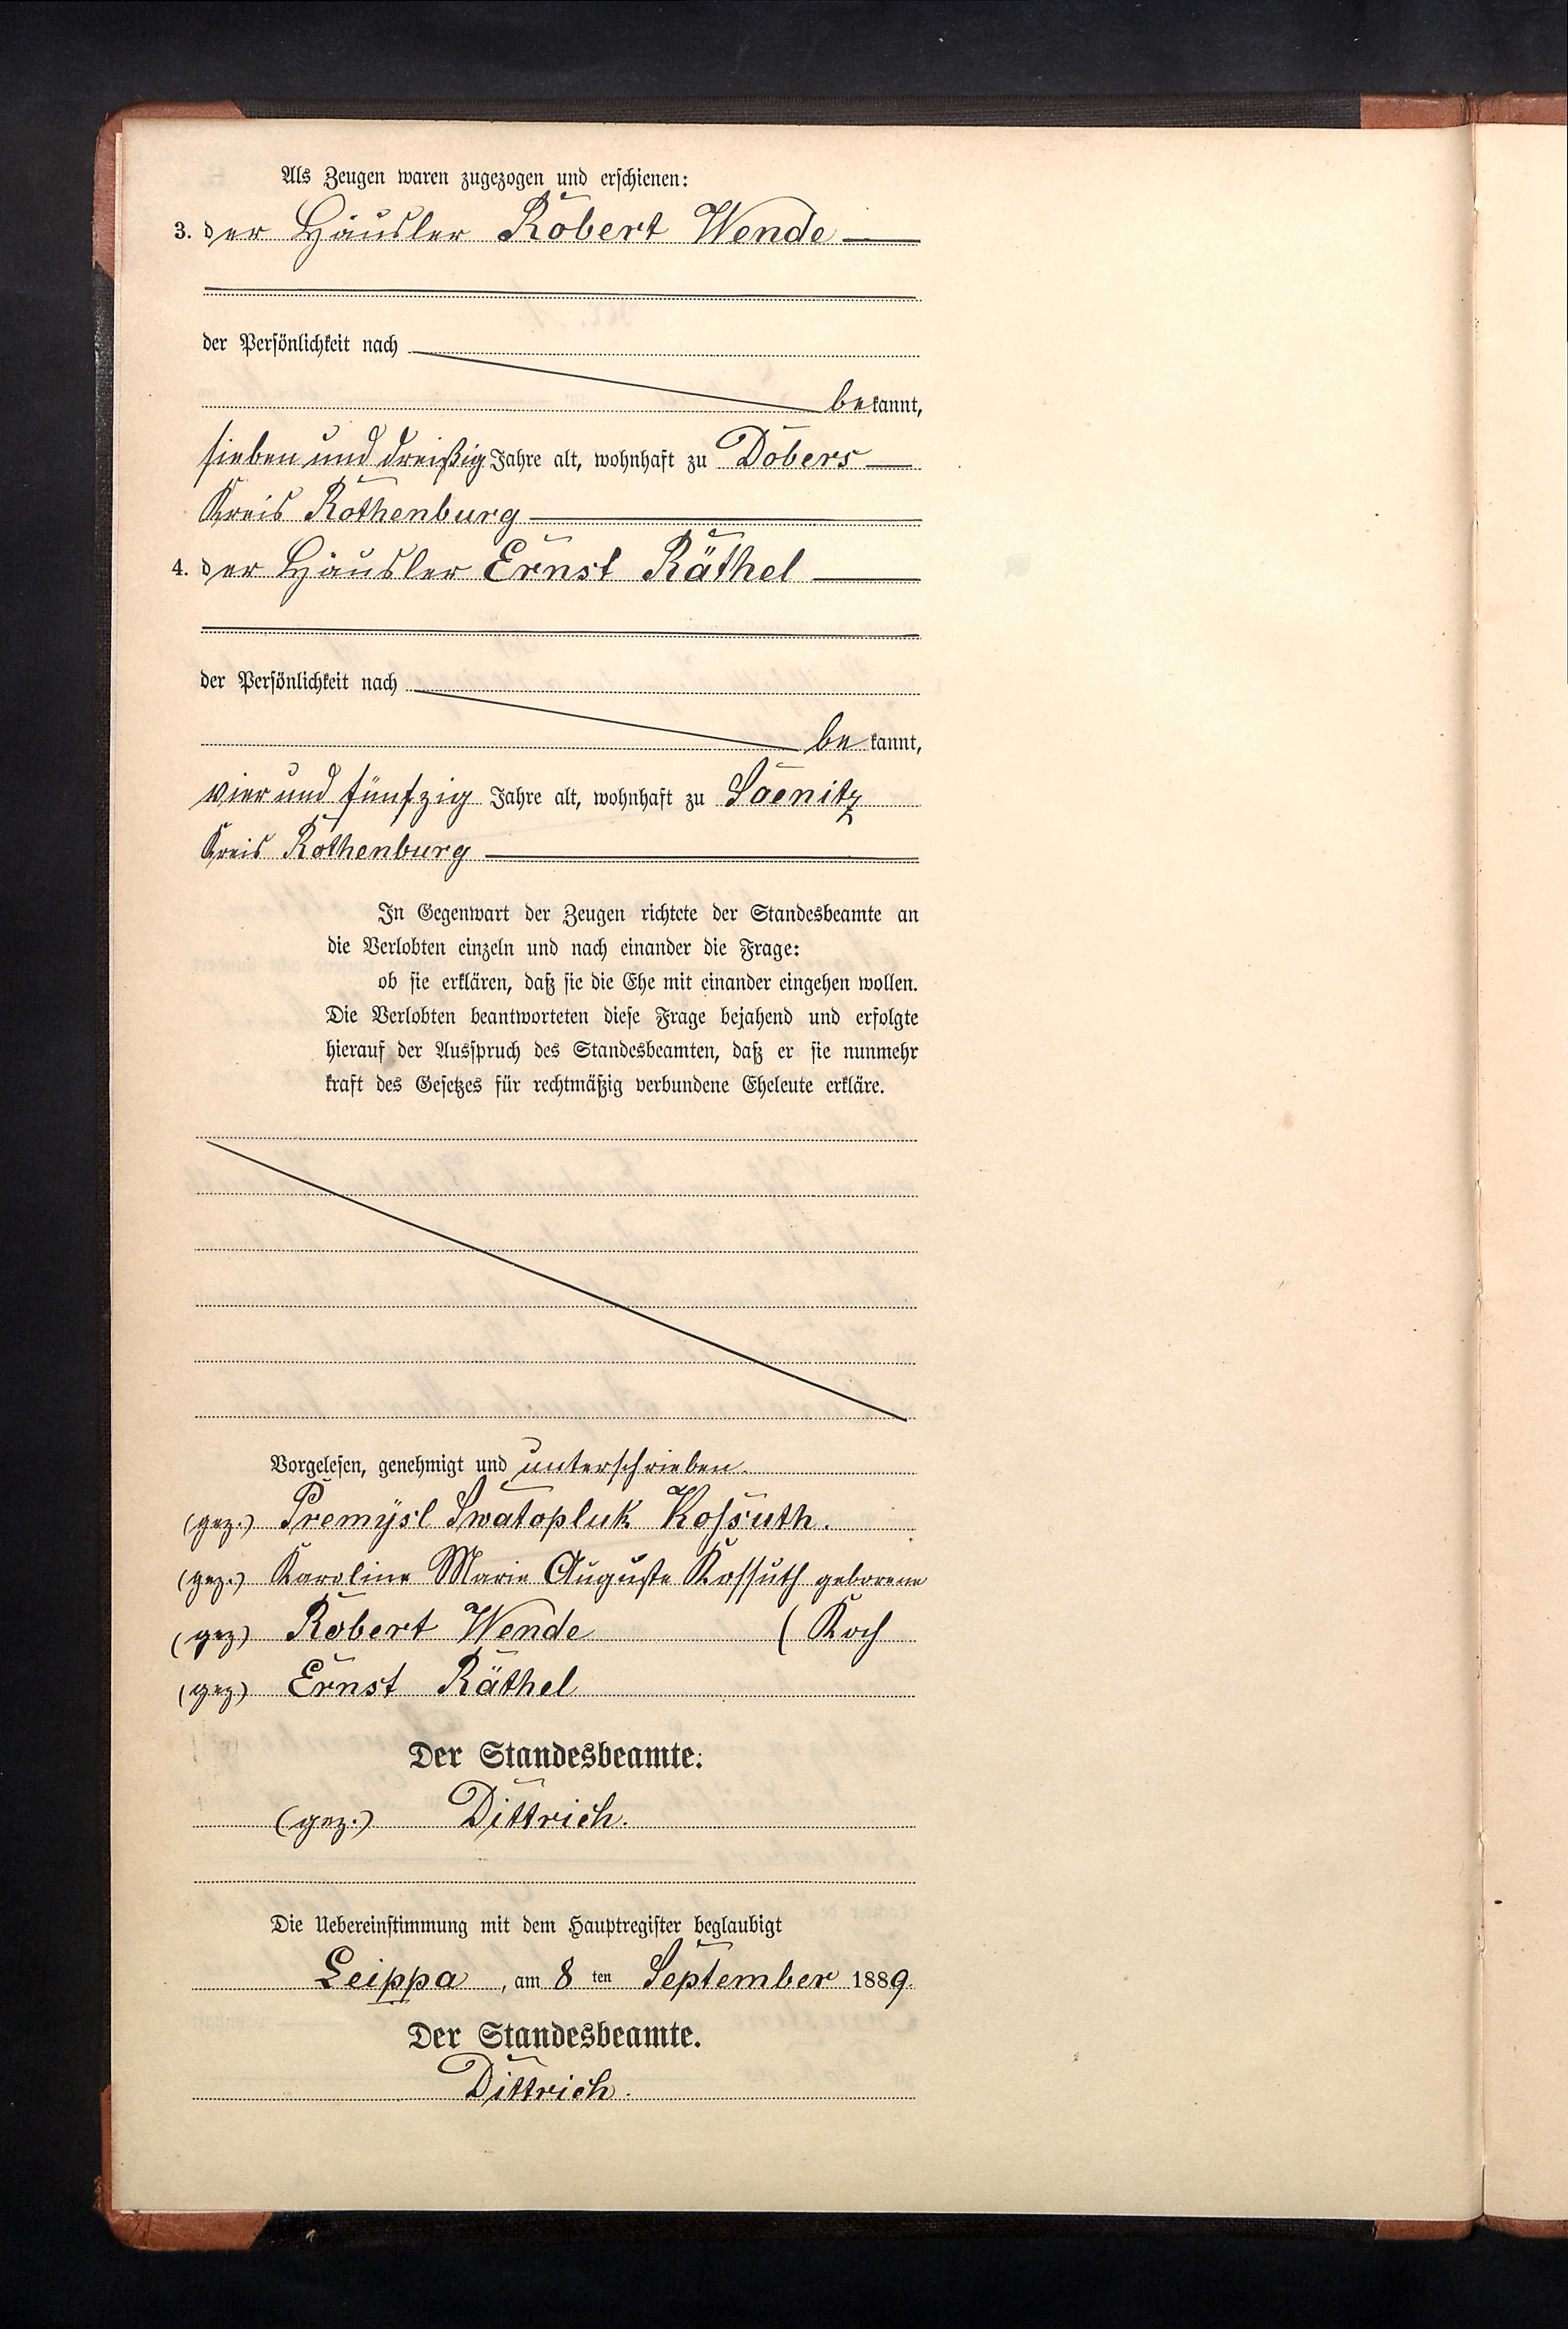 Als Zeugen waren zugezogen und erschienen:
3. der Häusler Robert Wende
der Persönlichkeit nach
bekannt,
sieben und dreißig Jahre alt, wohnhaft zu Dobers
Kreis Rothenburg
4. der Häusler Ernst Räthel
der Persönlichkeit nach
bekannt,
vier und fünfzig Jahre alt, wohnhaft zu Saenitz
Kreis Rothenburg
In Gegenwart der Zeugen richtete der Standesbeamte an
die Verlobten einzeln und nach einander die Frage:
ob sie erklären, daß sie die Ehe mit einander eingehen wollen.
Die Verlobten beantworteten diese Frage bejahend und erfolgte
hierauf der Ausspruch des Standesbeamten, daß er sie nunmehr
kraft des Gesetzes für rechtmäßig verbundene Eheleute erkläre.
Vorgelesen, genehmigt und unterschrieben.
(gez.) Premysl Swatopluk Kossuth.
(gez.) Karoline Marie Auguste Kossuth geborene
(gez) Robert Wende ( Koch
(gez) Ernst Räthel
Der Standesbeamte:
(gez.) Dittrich.
Die Uebereinstimmung mit dem Hauptregister beglaubigt
Leippa, am 8 ten September 1889.
Der Standesbeamte.
Dittrich.